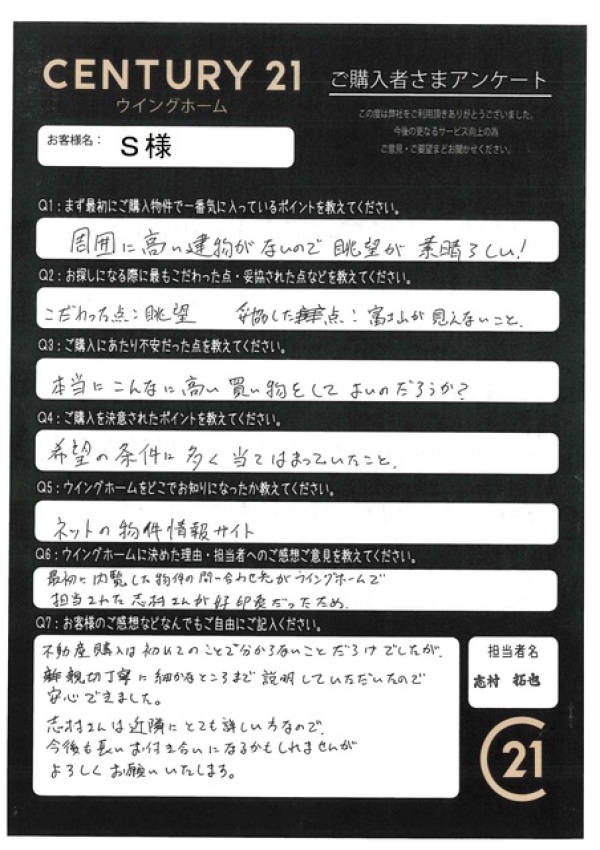 CENTURY 21
ウイングホーム
ご購入者さまアンケート
この度は弊社をご利用頂きありがとうございました。
今後の更なるサービス向上の為
ご意見・ご要望をお聞かせください。
お客様名: S様
Q1:まず最初にご購入物件で一番気に入っているポイントを教えてください。
周囲に高い建物がないので眺望が素晴らしい!
Q2:お探しになる際に最もこだわった点・妥協された点などを教えてください。
こだわった点:眺望 妥協した点:富士山が見えないこと.
Q3:ご購入にあたり不安だった点を教えてください。
本当にこんなに高い買い物をしてよいのだろうか?
Q4:ご購入を決意されたポイントを教えてください。
希望の条件に多く当てはまっていたこと.
Q5:ウイングホームをどこでお知りになったか教えてください。
ネットの物件情報サイト
Q6:ウイングホームに決めた理由・担当者へのご感想ご意見を教えてください。
最初に内覧した物件の問い合わせ先がウイングホームで
担当された志村さんが好印象だったため.
Q7:お客様のご感想などなんでもご自由にご記入ください。
不動産購入は初めてのことで分からないことだらけでしたが、
親切丁寧に細かなところまで説明していただいたので
安心できました。
志村さんは近隣にとても詳しい方なので、
今後も長いお付き合いになるかもしれませんが
よろしくお願いいたします。
担当者名
志村 拓也
C21